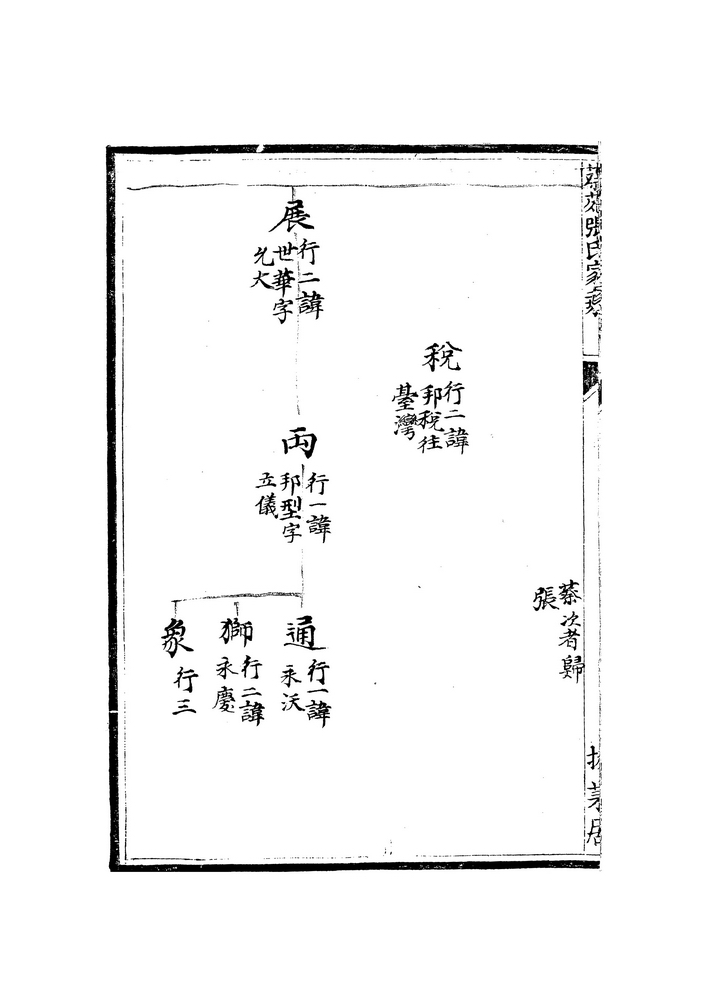 張氏家
蔡次者歸
張
稅
行二諱
邦稅往
臺灣
展
行二諱
世華字
允大
両
行一諱
邦型字
立儀
通
行一諱
永沃
獅
行二諱
永慶
象
行三
居